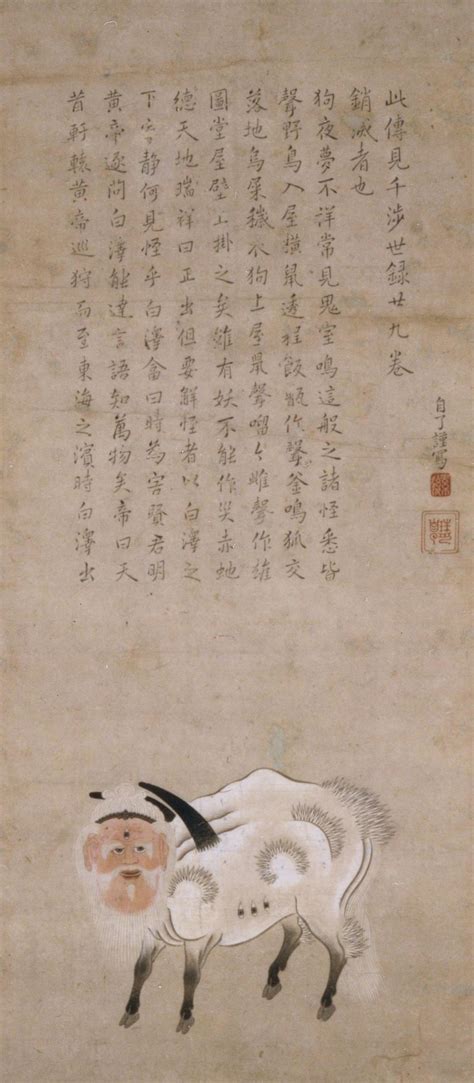 昔軒轅黄帝巡狩而至東海之濱時白澤出
黄帝逐問白澤能達言語知萬物矣帝曰天
下寧静何見怪乎白澤畣曰時為害賢君明
德天地瑞祥曰正出但要解怪者以白澤之
圖堂屋壁上掛之矣雖有妖不能作災赤地
落地鳥屎穢衣狗上屋鼠聲々雌聲作雄
聲野鳥入屋横鼠遶程飯甑作聲釜鳴狐交
狗夜夢不洋常見鬼室鳴這般之諸怪悉皆
銷滅者也
此傳見千渉世録廿九卷
自了謹寫